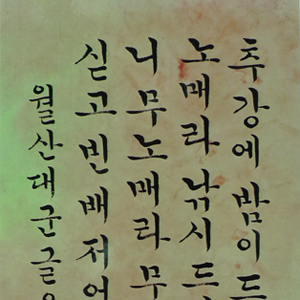 추강에 밤이 드
노매라 낚시 드
니무노매라 무
싣고 빈 배 저어
월산대군 글